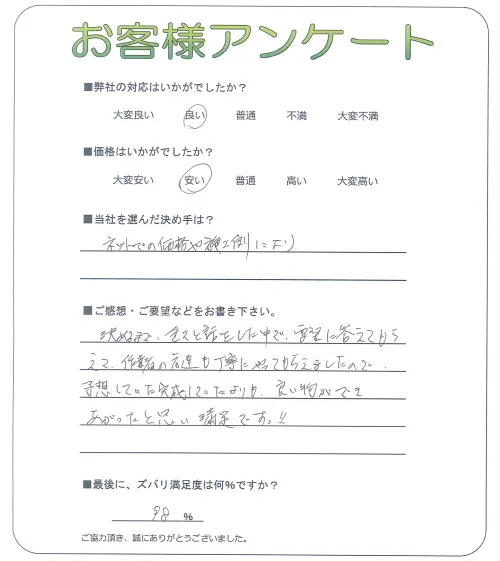 お客様アンケート
■弊社の対応はいかがでしたか？
大変良い 良い 普通 不満 大変不満
■価格はいかがでしたか？
大変安い 安い 普通 高い 大変高い
■当社を選んだ決め手は？
ネットでの価格や施工例により
■ご感想・ご要望などをお書き下さい。
決めるまで、色々と話をした中で、要望に答えてもら
えて、作業の方達も丁寧にやってもらえましたので、
予想していた完成していたよりも、良い物ができ
あがったと思い満足です。!!
■最後に、ズバリ満足度は何%ですか？
98 %
ご協力頂き、誠にありがとうございました。